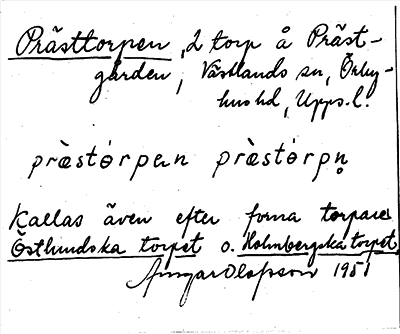 Prästtorpen, 2 torp å Präst-
gården, Västlands sn, Örby-
hus hd, Upps. l.
præ̀stórpen præ̀stórpn̥
Kallas även efter forna torpare
Östlundska torpet o. Holmbergska torpet.
Ingvar Olofsson 1951